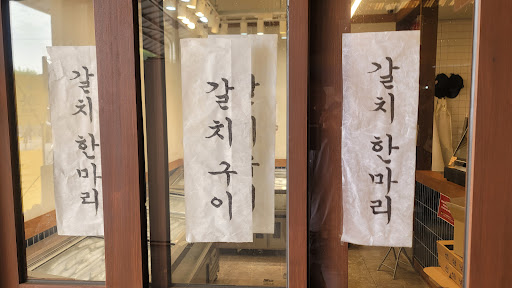 갈치 한마리
갈치 구이
갈치 한마리